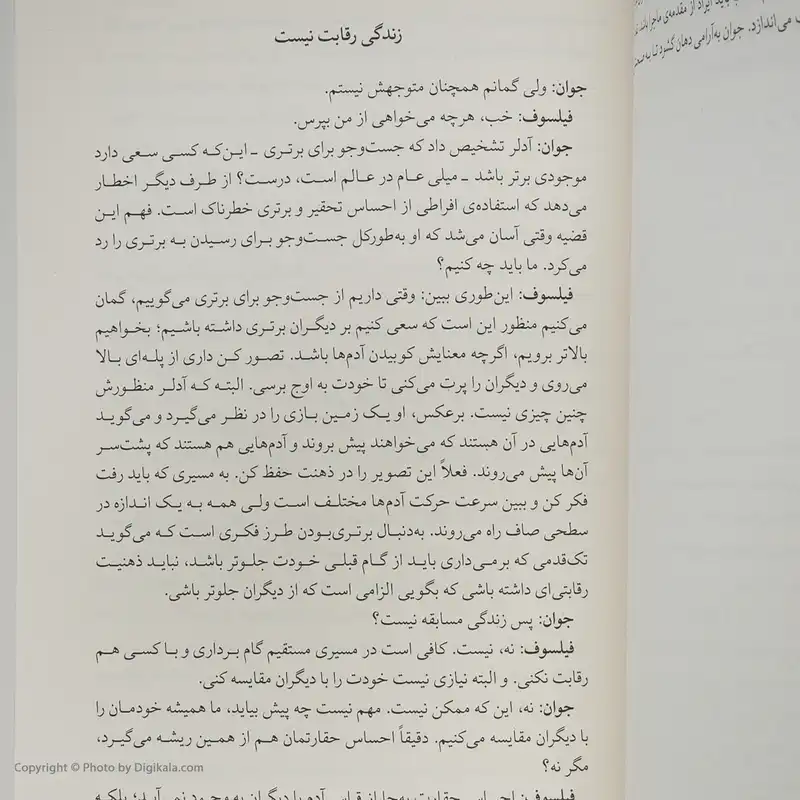 زندگی رقابت نیست
جوان: ولی گمانم همچنان متوجهش نیستم.
فیلسوف: خب، هرچه می‌خواهی از من بپرس.
جوان: آدلر تشخیص داد که جست‌وجو برای برتری ـ این‌که کسی سعی دارد
موجودی برتر باشد ـ میلی عام در عالم است، درست؟ از طرف دیگر اخطار
می‌دهد که استفاده‌ی افراطی از احساس تحقیر و برتری خطرناک است. فهم این
قضیه وقتی آسان می‌شد که او به‌طورکل جست‌وجو برای رسیدن به برتری را رد
می‌کرد. ما باید چه کنیم؟
فیلسوف: این‌طوری ببین: وقتی داریم از جست‌وجو برای برتری می‌گوییم، گمان
می‌کنیم منظور این است که سعی کنیم بر دیگران برتری داشته باشیم؛ بخواهیم
بالاتر برویم، اگرچه معنایش کوبیدن آدم‌ها باشد. تصور کن داری از پله‌ای بالا
می‌روی و دیگران را پرت می‌کنی تا خودت به اوج برسی. البته که آدلر منظورش
چنین چیزی نیست. برعکس، او یک زمین بازی را در نظر می‌گیرد و می‌گوید
آدم‌هایی در آن هستند که می‌خواهند پیش بروند و آدم‌هایی هم هستند که پشت‌سر
آن‌ها پیش می‌روند. فعلاً این تصویر را در ذهنت حفظ کن. به مسیری که باید رفت
فکر کن و ببین سرعت حرکت آدم‌ها مختلف است ولی همه به یک اندازه در
سطحی صاف راه می‌روند. به‌دنبال برتری‌بودن طرز فکری است که می‌گوید
تک‌قدمی که برمی‌داری باید از گام قبلی خودت جلوتر باشد، نباید ذهنیت
رقابتی‌ای داشته باشی که بگویی الزامی است که از دیگران جلوتر باشی.
جوان: پس زندگی مسابقه نیست؟
فیلسوف: نه، نیست. کافی است در مسیری مستقیم گام برداری و با کسی هم
رقابت نکنی. و البته نیازی نیست خودت را با دیگران مقایسه کنی.
جوان: نه، این که ممکن نیست. مهم نیست چه پیش بیاید، ما همیشه خودمان را
با دیگران مقایسه می‌کنیم. دقیقاً احساس حقارتمان هم از همین ریشه می‌گیرد،
مگر نه؟
می‌اندازد. جوان به‌آرامی دهان گشود تا به
Copyright © Photo by Digikala.com